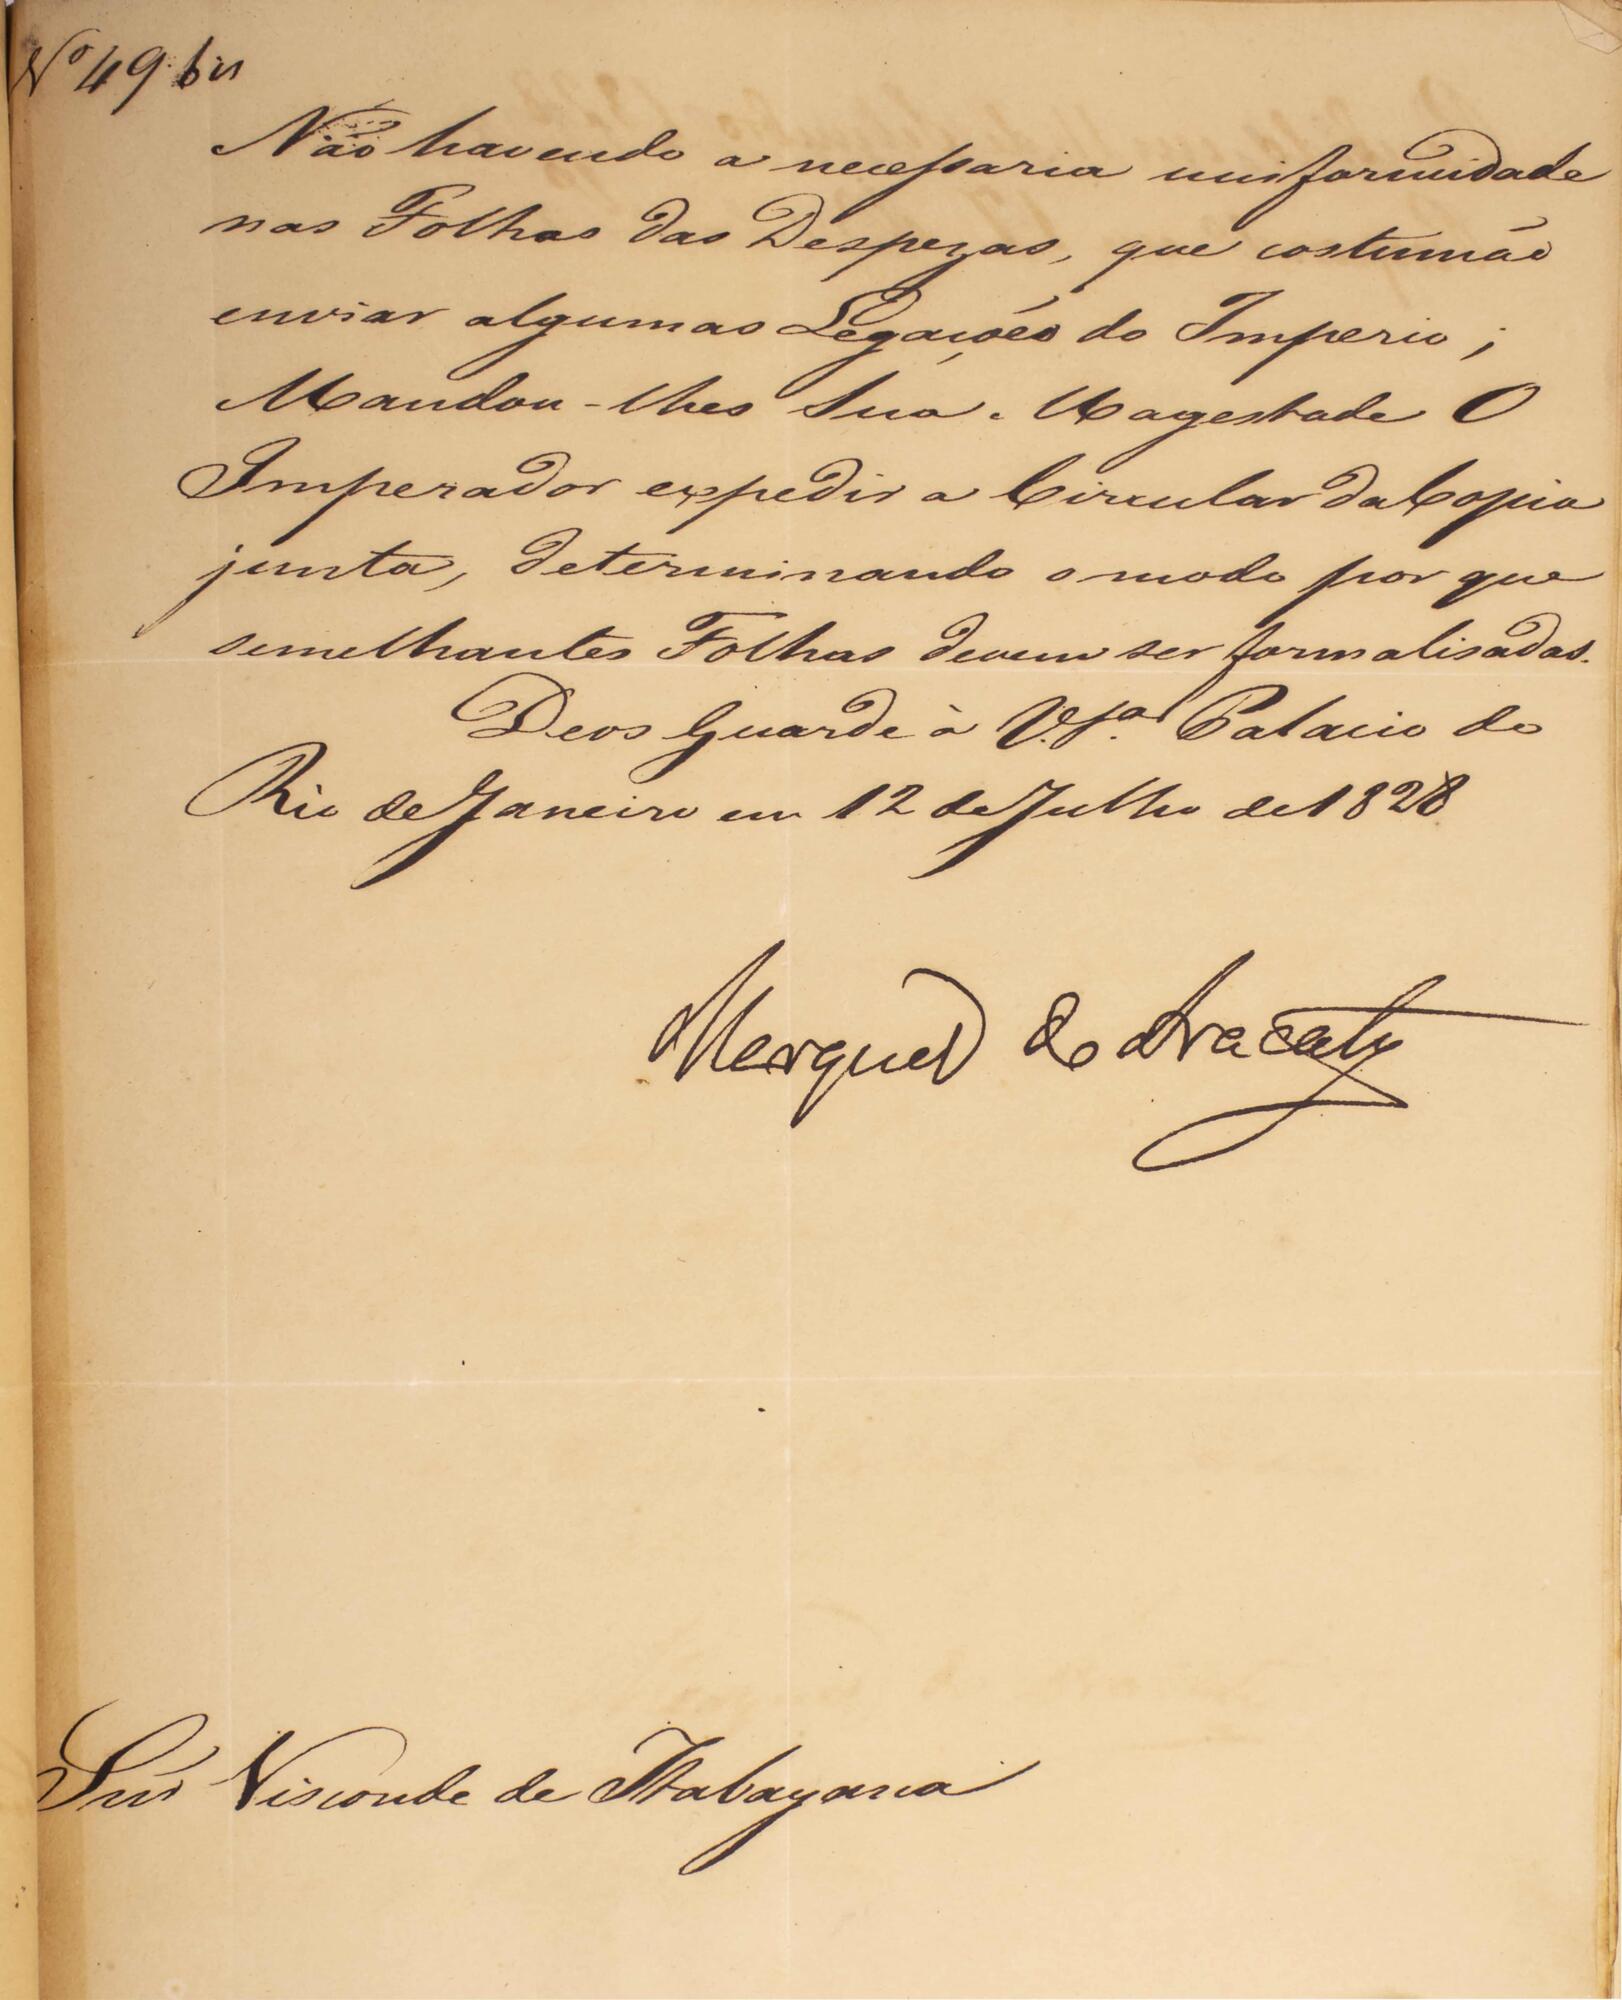 Nº 49 bis
Não havendo a necessaria uniformidade
nas Folhas das Despezas, que costumão
enviar algumas Legações do Imperio;
Mandou-lhes Sua Magestade O
Imperador expedir a Circular da Copia
junta, determinando o modo por que
semelhantes Folhas devem ser formalisadas.
Deos Guarde à V. Sª. Palacio do
Rio de Janeiro em 12 de Julho de 1828
Marquez de Aracaty
Snr Visconde de Itabayana